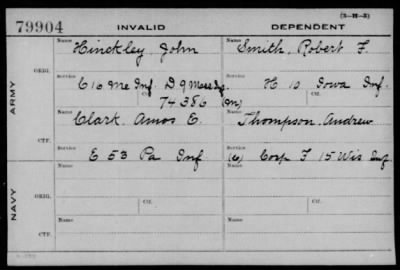 (3-H-3)
79904 INVALID DEPENDENT
Name Name
Hinckley, John Smith, Robert F.
Service Service
E 16 Me Inf. D. 9 Mass Inf. H 10 Iowa Inf.
ORIG. Ctf. Ctf.
74386 (In)
ARMY
Name Name
Clark, Amos E. Thompson, Andrew
CTF.
Service Service
E 53 Pa Inf (C) Corp F 15 Wis Inf
Name Name
ORIG.
Service Service
Ctf. Ctf.
NAVY
Name Name
CTF.
Service Service